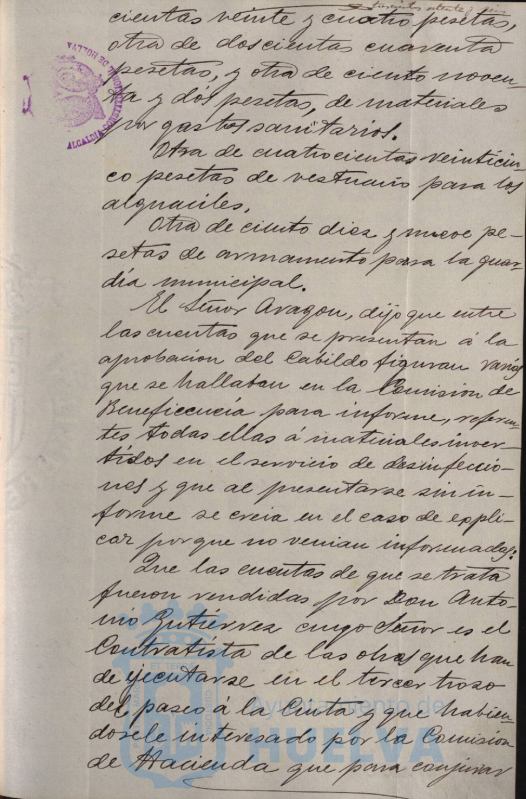 cientas veinte y cuatro pesetas,
otra de doscientas cuarenta
pesetas, y otra de ciento noven-
ta y dós pesetas, de materiales
por gastos sanitarios.
Otra de cuatrocientas veinticin-
co pesetas de vestuario para los
alguaciles.
Otra de ciento diez y nueve pe-
setas de armamento para la guar-
dia municipal.
El Señor Aragon, dijo que entre
las cuentas que se presentan á la
aprobacion del Cabildo figuran varias
que se hallaban en la Comision de
Beneficencia para informe, referen-
tes todas ellas á materiales inver-
tidos en el servicio de desinfeccio-
nes y que al presentarse sin in-
forme se creia en el caso de expli-
car porque no venian informadas:
Que las cuentas de que se trata
fueron rendidas por Don Anto-
nio Gutiérrez cuyo Señor es el
Contratista de las obras que han
de ejecutarse en el tercer troso
del paseo á la Cinta y que habien-
dosele interesado por la Comision
de Hacienda que para conjurar
ALCALDIA
DE HUELVA
Ayuntamiento de
HUELVA